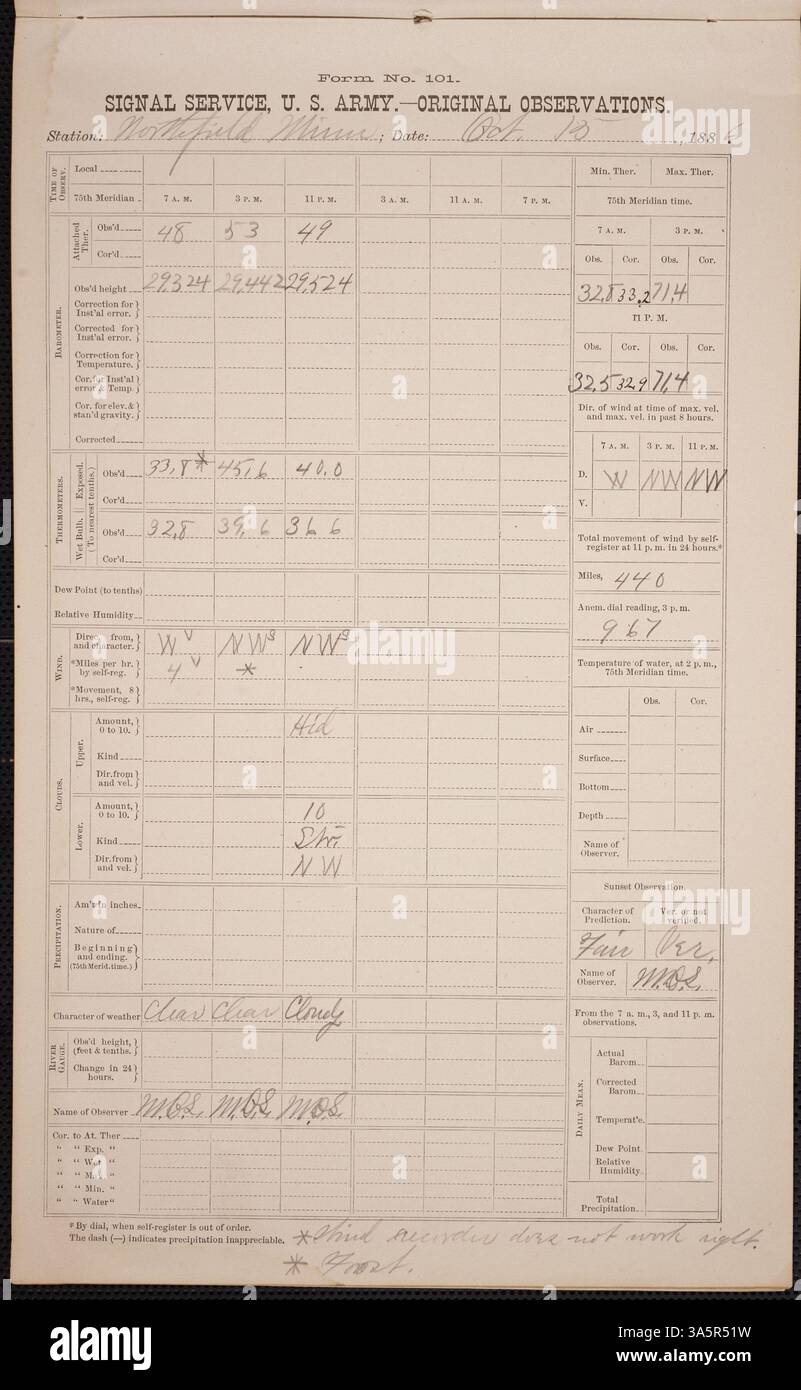 Form No. 101.
SIGNAL SERVICE, U. S. ARMY.—ORIGINAL OBSERVATIONS.
Station: Northfield Minn; Date: Oct. 15, 188
TIME OF OBSERV.
Local
75th Meridian 7 A. M. 3 P. M. 11 P. M. 3 A. M. 11 A. M. 7 P. M.
BAROMETER.
Attached Ther.
Obs'd 48 53 49
Cor'd
Obs'd height 29,324 29,442 29,524
Correction for Inst'al error.
Corrected for Inst'al error.
Correction for Temperature.
Cor. for Inst'al error & Temp.
Cor. for elev. & stan'd gravity.
Corrected
THERMOMETERS.
(To nearest tenths.)
Exposed.
Obs'd 33,8* 45,6 40.0
Cor'd
Wet Bulb.
Obs'd 32,8 39,6 36 6
Cor'd
Dew Point (to tenths)
Relative Humidity
WIND.
Direc from, and character. W V N W S N W S
*Miles per hr. by self-reg. 4 V *
*Movement, 8 hrs., self-reg.
CLOUDS.
Upper.
Amount, 0 to 10. Hid
Kind
Dir. from and vel.
Lower.
Amount, 0 to 10. 10
Kind Str.
Dir. from and vel. N W
PRECIPITATION.
Am't in inches.
Nature of
Beginning and ending. (75th Merid. time.)
Character of weather Clear Clear Cloudy
RIVER GAUGE.
Obs'd height, (feet & tenths.)
Change in 24 hours.
Name of Observer M.O.S. M.O.S. M.O.S.
Cor. to At. Ther
" " Exp. "
" " Wet "
" " M "
" " Min. "
" " Water "
Min. Ther. Max. Ther.
75th Meridian time.
7 A. M. 3 P. M.
Obs. Cor. Obs. Cor.
32,8 33,2 71,4
11 P. M.
Obs. Cor. Obs. Cor.
32,5 32,9 71,4
Dir. of wind at time of max. vel. and max. vel. in past 8 hours.
7 A. M. 3 P. M. 11 P. M.
D. W NW NW
V.
Total movement of wind by self-register at 11 p. m. in 24 hours.*
Miles, 440
Anem. dial reading, 3 p. m.
967
Temperature of water, at 2 p. m., 75th Meridian time.
Obs. Cor.
Air
Surface
Bottom
Depth
Name of Observer.
Sunset Observation.
Character of Prediction. Ver. or not verified.
Fair Ver.
Name of Observer. M.O.S.
From the 7 a. m., 3, and 11 p. m. observations.
DAILY MEAN.
Actual Barom.
Corrected Barom.
Temperat'e.
Dew Point.
Relative Humidity.
Total Precipitation.
* By dial, when self-register is out of order.
The dash (—) indicates precipitation inappreciable.
* Wind recorder does not work right.
* Frost.
alamy
Image ID: 3A5R51W
www.alamy.com